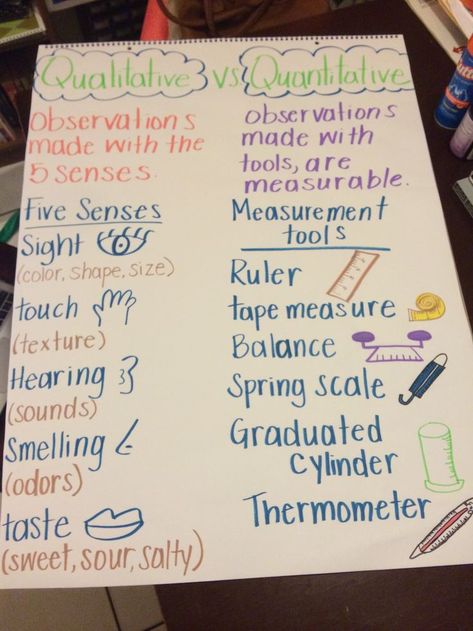 Qualitative vs Quantitative
Observations
made with the
5 senses.
Five Senses
Sight
(color, shape, size)
touch
(texture)
Hearing
(sounds)
Smelling
(odors)
taste
(sweet, sour, salty)
observations
made with
tools, are
measurable.
Measurement
tools
Ruler
tape measure
Balance
Spring scale
Graduated
Cylinder
Thermometer